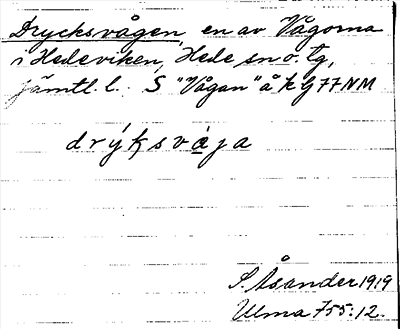 Drycksvågen, en av Vågorna
i Hedeviken, Hede sn o. tg,
Jämtl. l. S "Vågan" å k G77NM
drýksvaja
S. Åsander 1919
Ulma 755:12.